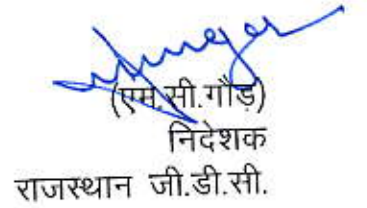 (एम.सी.गौड़)
निदेशक
राजस्थान जी.डी.सी.